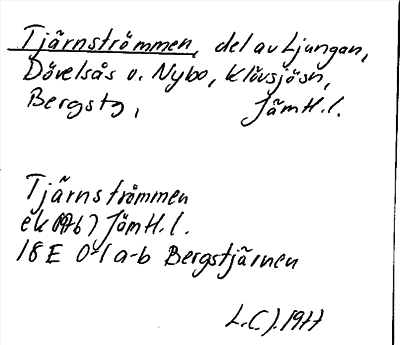 Tjärnströmmen, del av Ljungan,
Dövelsås v. Nybo, Klövsjösn,
Bergstg, Jämtl.l.
Tjärnströmmen
ek Jämtl.l.
18E 0-1 a-b Bergstjärnen
L.C.J. 1977